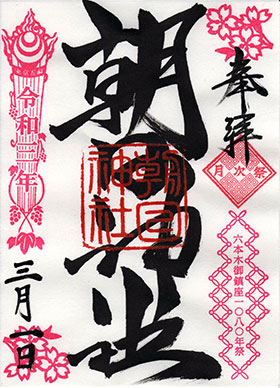 奉拝
月次祭
六本木御鎮座一〇八〇年祭
朝日神社
朝日神社
令和三年
三月一日